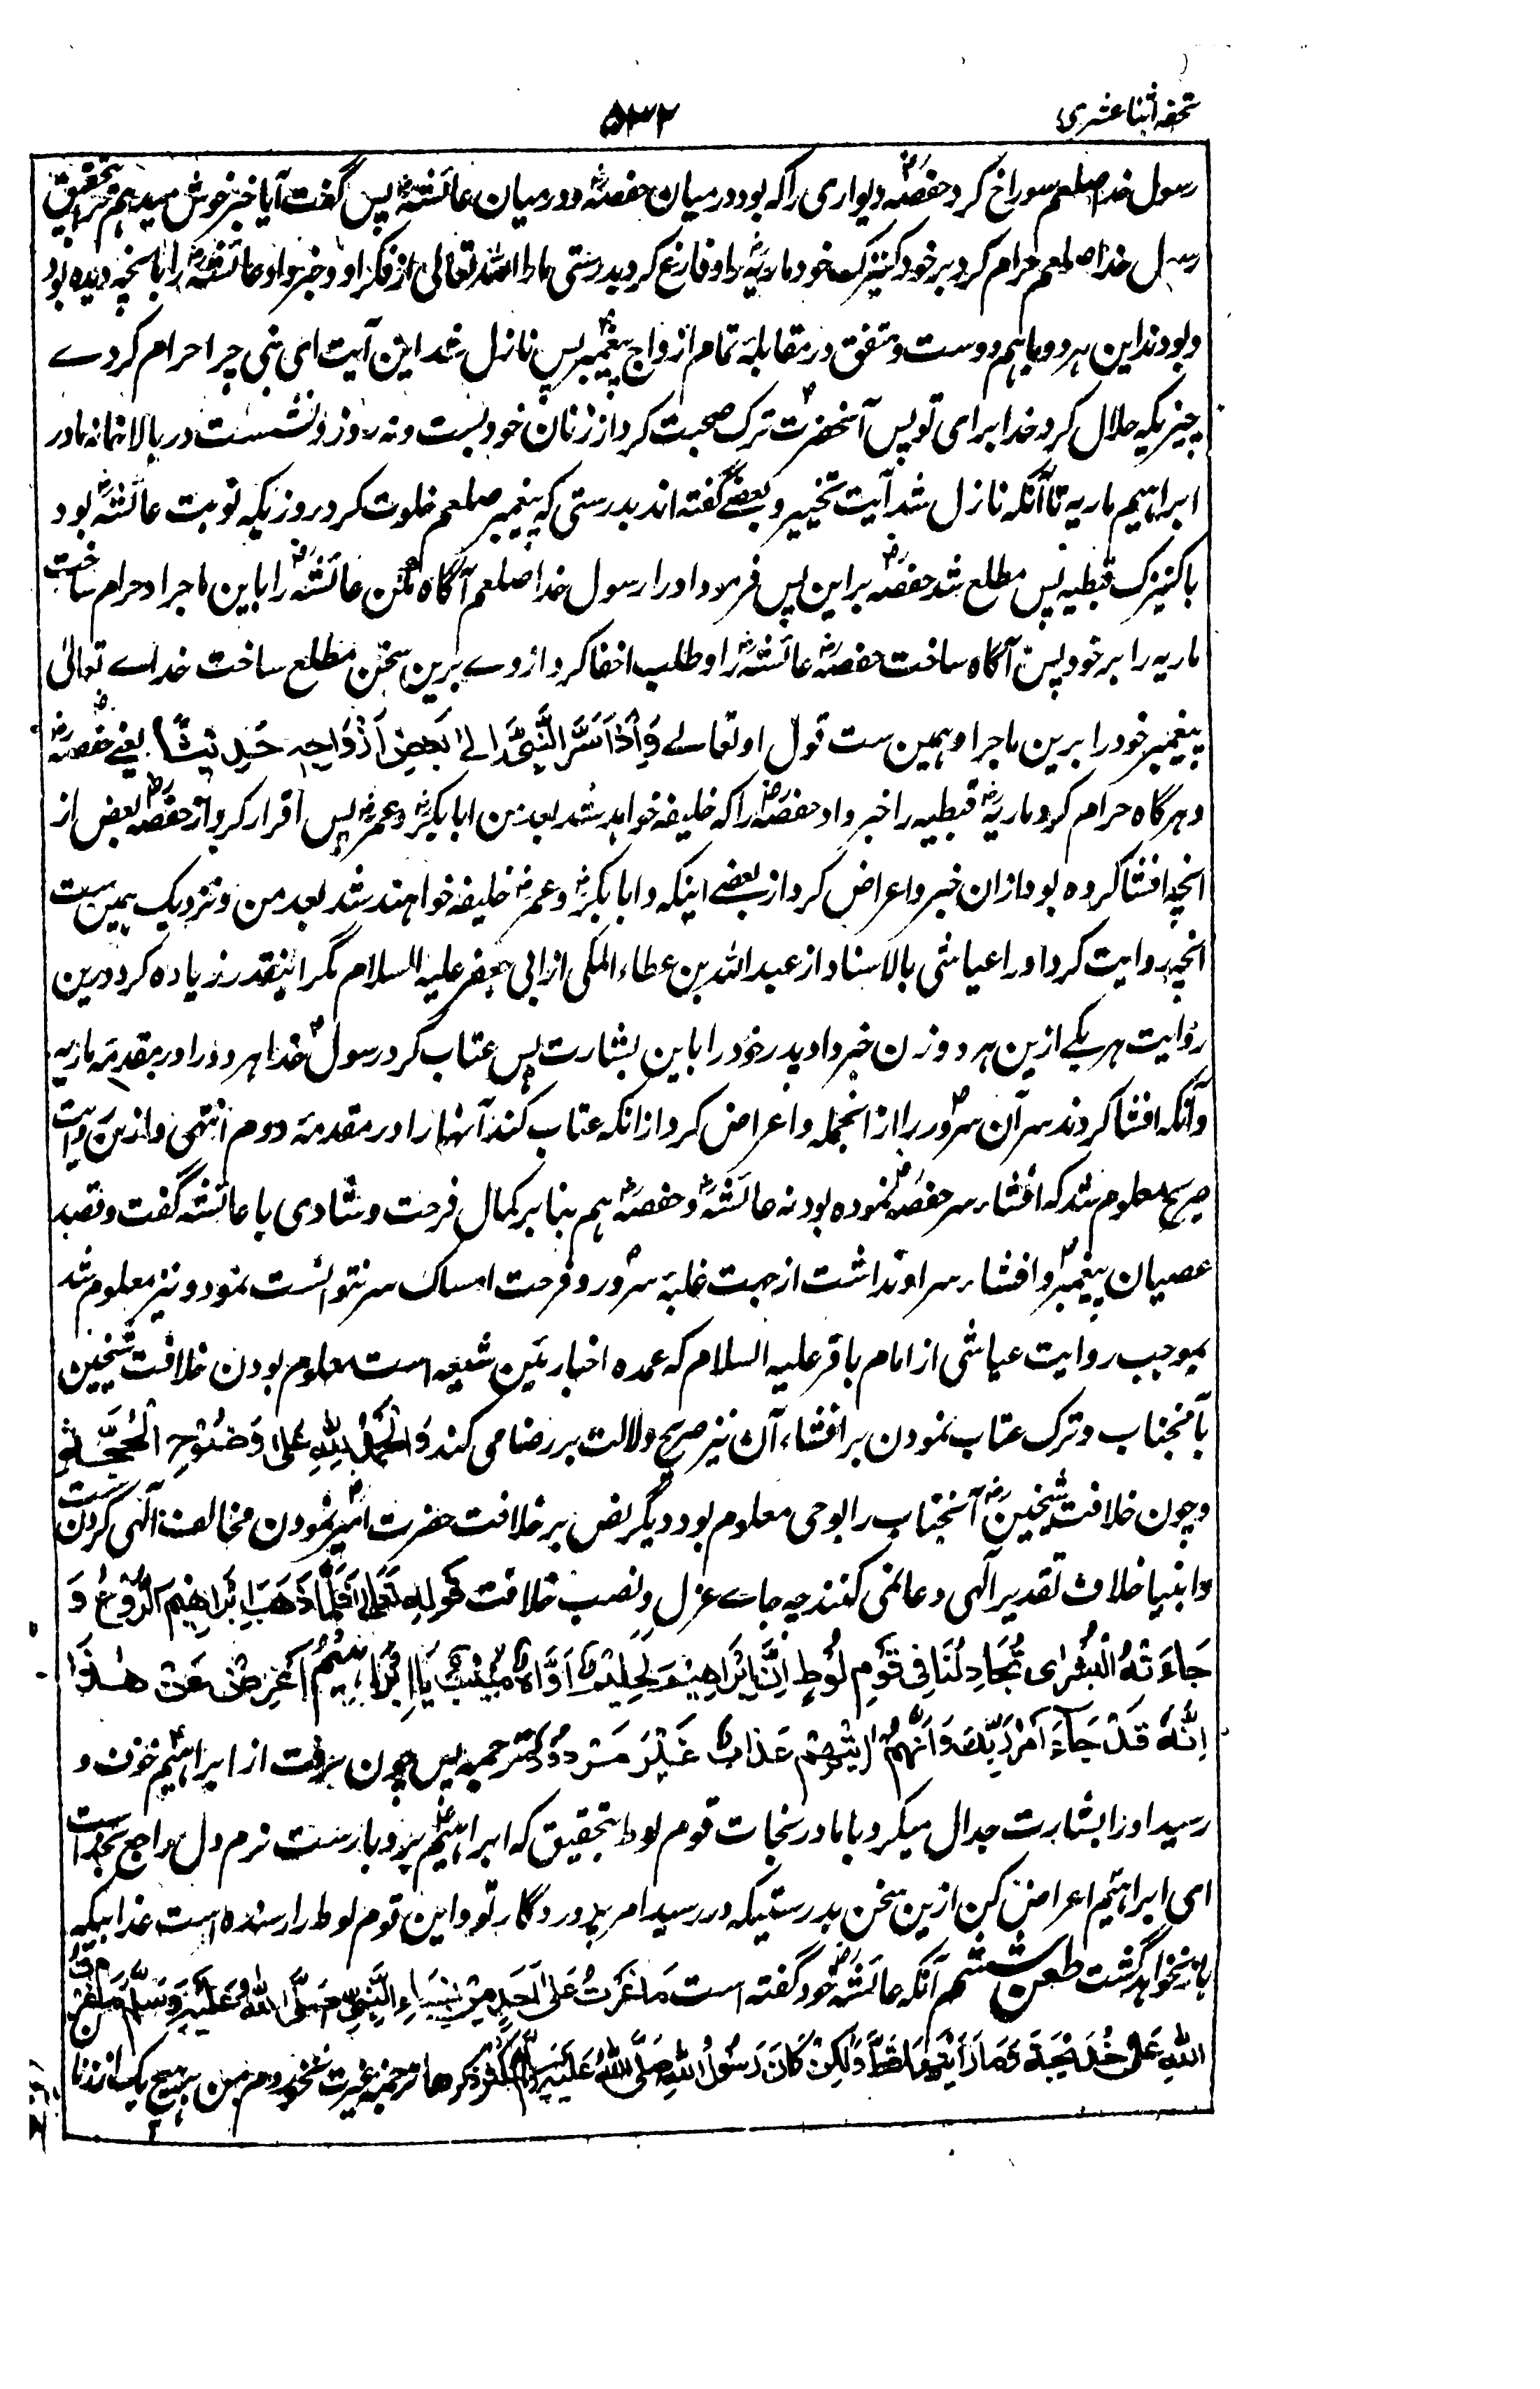 تحفه اثنا عشری
۵۳۲
رسول خدا صلعم سوراخ کرد حفصهؓ دیواری را که بود درمیان حفصهؓ و درمیان عائشهؓ پس گفت آیا خبر خوش میدهم ترا بتحقیق
رسول خدا صلعم حرام کرد بر خود کنیزک خود ماریهؓ را و فارغ کرد بدرستی مارا الله تعالی از فکر او و خبر داد عائشهؓ را بانچه دیده بود
و بودند این هر دو باهم دوست و متفق در مقابلهٔ تمام ازواج پیغمبرؐ پس نازل شد این آیت ای نبی چرا حرام کردے
چیزیکه حلال کرد خدا برای تو پس آنحضرتؐ ترک صحبت کرد از زنان خود بست و نه روز و نشست در بالاخانه مادر
ابراهیم ماریه تا آنکه نازل شد آیت تخییر و بعضے گفته اند بدرستی که پیغمبر صلعم خلوت کرد روزیکه نوبت عائشهؓ بود
با کنیزک قبطیه پس مطلع شد حفصهؓ بر این پس فرمود او را رسول خدا صلعم آگاه مکن عائشهؓ را باین ماجرا و حرام ساخت
ماریه را بر خود پس آگاه ساخت حفصهؓ عائشهؓ را و طلب اخفا کرد ازوے برین سخن مطلع ساخت خداے تعالی
پیغمبر خود را برین ماجرا و همین ست قول او تعالے وَاِذْ اَسَرَّ النَّبِیُّ اِلٰے بَعْضِ اَزْوَاجِهٖ حَدِیْثًا یعنے حفصهؓ
و هرگاه حرام کرد ماریهؓ قبطیه را خبر داد حفصهؓ را که خلیفه خواهد شد بعد من ابابکرؓ و عمرؓ پس اقرار کرد از حفصهؓ بعض از
انچه افشا کرده بود ازان خبر و اعراض کرد از بعضے اینکه و ابابکرؓ و عمرؓ خلیفه خواهند شد بعد من و نزدیک بهمین ست
انچه روایت کرد او را عیاشی بالاسناد از عبد الله بن عطاء المکی از ابی جعفر علیه السلام مگر اینقدر زیاده کرد درین
روایت هر یکے ازین هر دو زن خبر داد پدر خود را باین بشارت پس عتاب کرد رسولؐ خدا هر دو را در مقدمهٔ ماریه
و آنکه افشا کردند سر آن سرورؐ را از انجمله و اعراض کرد از انکه عتاب کند آنهارا در مقدمهٔ دوم انتهی و ازین روایت
صریح معلوم شد که افشاء سر حفصهؓ نموده بود نه عائشهؓ و حفصهؓ هم بنا بر کمال فرحت و شادی با عائشه گفت و قصد
عصیان پیغمبرؐ و افشاء سر او نداشت از جهت غلبهٔ سرور و فرحت امساک سر نتوانست نمود و نیز معلوم شد
بموجب روایت عیاشی از امام باقر علیه السلام که عمده اخباریین شیعه است معلوم بودن خلافت شیخین
بآنجناب و ترک عتاب نمودن بر افشاء آن نیز صریح دلالت بر رضا می کند وَالْحَمْدُ لِلّٰهِ عَلٰی وُضُوْحِ الْحُجَّةِ
و چون خلافت شیخینؓ آنجناب را بوحی معلوم بود دیگر نص بر خلافت حضرت امیرؓ نمودن مخالفت آلهی کردن ست
و انبیا خلاف تقدیر آلهی دعا نمی کنند چه جاے عزل و نصب خلافت قَوْلِهٖ تَعَالٰی فَلَمَّا ذَهَبَ عَنْ اِبْرَاهِیْمَ الرَّوْعُ وَ
جَاءَتْهُ الْبُشْرٰی یُجَادِلُنَا فِی قَوْمِ لُوْطٍ اِنَّ اِبْرَاهِیْمَ لَحَلِیْمٌ اَوَّاهٌ مُنِیْبٌ یَا اِبْرَاهِیْمُ اَعْرِضْ عَنْ هٰذَا
اِنَّهٗ قَدْ جَآءَ اَمْرُ رَبِّكَ وَاَنَّهُمْ اٰتِیْهِمْ عَذَابٌ غَیْرُ مَرْدُوْدٍ ترجمه پس چون برفت از ابراهیمؑ خوف و
رسید او را بشارت جدال میکرد باما در نجات قوم لوط بتحقیق که ابراهیمؑ بردبار ست نرم دل راجع بخدا ست
ای ابراهیم اعراض کن ازین سخن بدرستیکه در رسید امر پروردگار تو و این قوم لوط را رسنده است عذابیکه
باز نخواهد گشت طعن ششم آنکه عائشهؓ خود گفته است مَا غِرْتُ عَلٰی اَحَدٍ مِنْ نِسَاءِ النَّبِیِّ صَلَّی اللّٰهُ عَلَیْهِ وَسَلَّمَ مَا غِرْتُ
عَلٰی خَدِیْجَةَ وَمَا رَاَیْتُهَا قَطُّ وَلٰکِنْ کَانَ رَسُوْلُ اللّٰهِ صَلَّی اللّٰهُ عَلَیْهِ وَسَلَّمَ یُکْثِرُ ذِکْرَهَا ترجمه غیرت نخوردم من بر هیچ یک از زنان